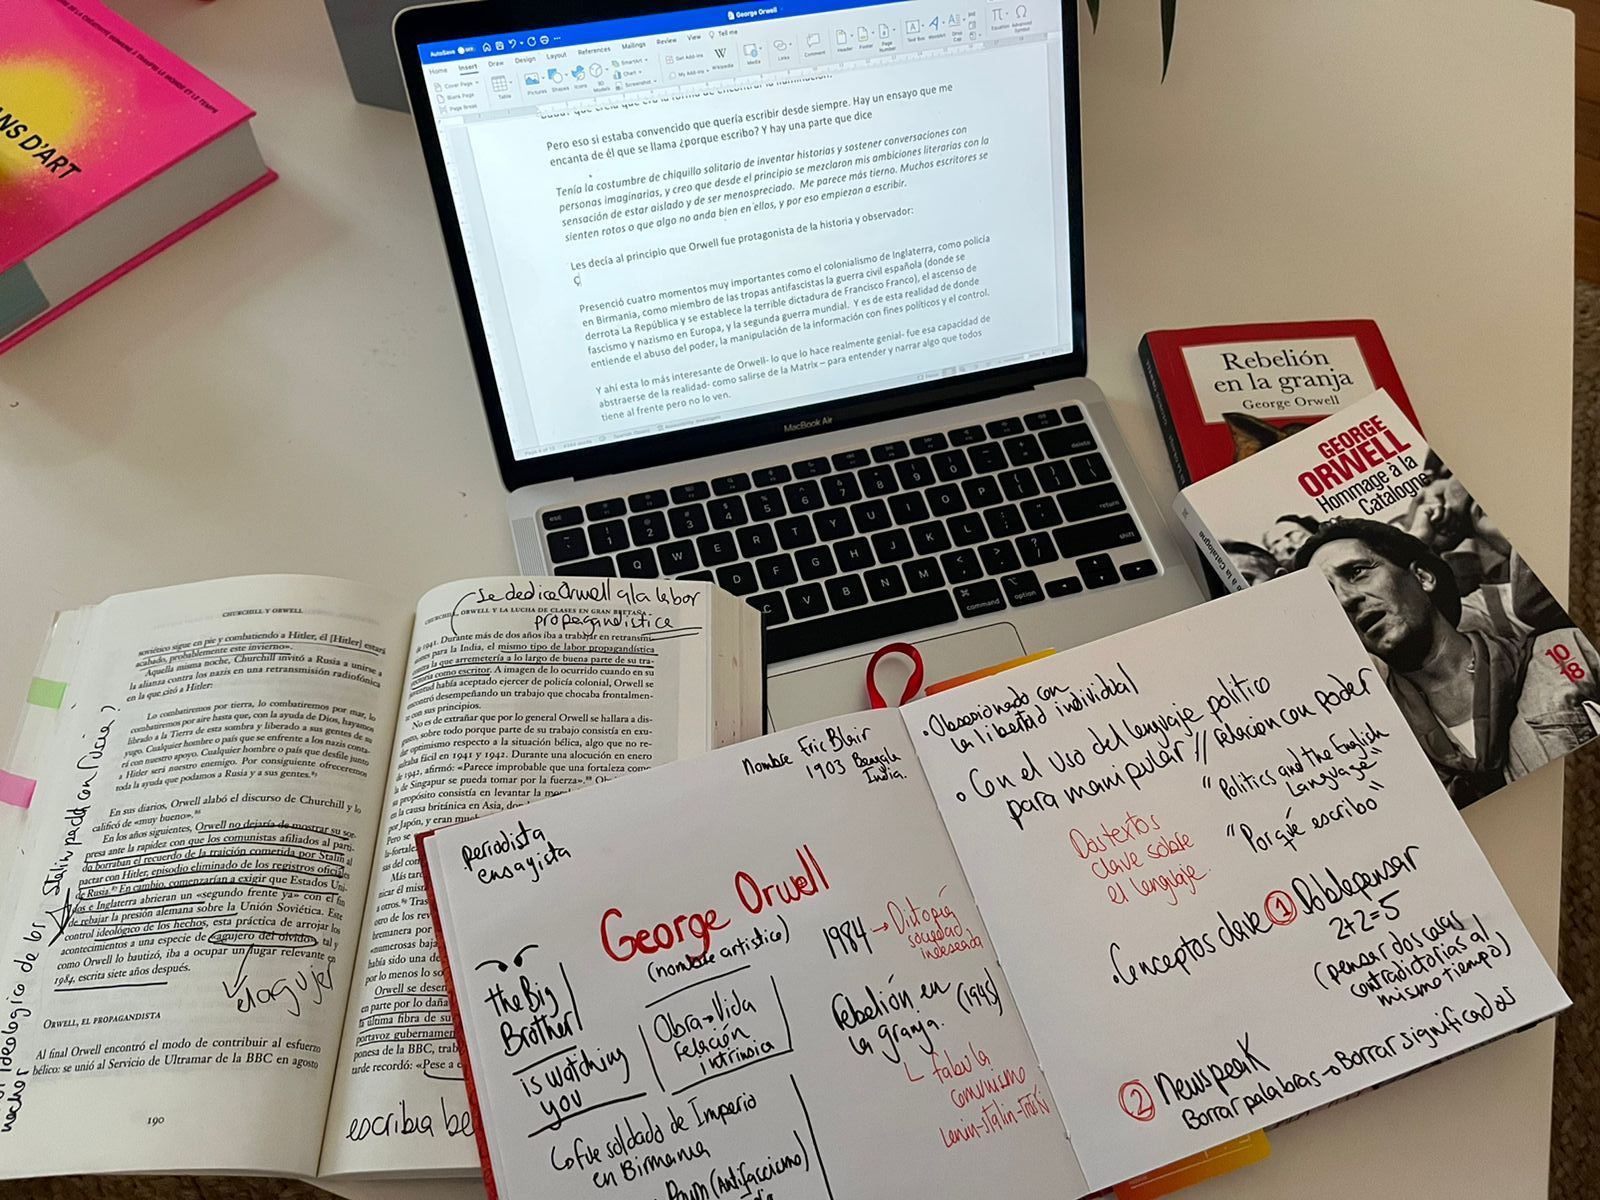 DE LA CRÉATIVITÉ HUMAINE À TRAVERS LE MONDE ET LE TEMPS
ANS D'ART
AutoSave
George Orwell
Home
Insert
Draw
Design
Layout
References
Mailings
Review
View
Tell me
Cover Page
Blank Page
Page Break
Table
Pictures
Shapes
Icons
3D Models
SmartArt
Chart
Screenshot
Get Add-ins
My Add-ins
Wikipedia
Media
Links
Comment
Header
Footer
Page Number
Text Box
WordArt
Drop Cap
Equation
Advanced Symbol
Pero eso si estaba convencido que quería escribir desde siempre. Hay un ensayo que me
encanta de él que se llama ¿porque escribo? Y hay una parte que dice
Tenía la costumbre de chiquillo solitario de inventar historias y sostener conversaciones con
personas imaginarias, y creo que desde el principio se mezclaron mis ambiciones literarias con la
sensación de estar aislado y de ser menospreciado. Me parece más tierno. Muchos escritores se
sienten rotos o que algo no anda bien en ellos, y por eso empiezan a escribir.
Les decía al principio que Orwell fue protagonista de la historia y observador:
Ç
Presenció cuatro momentos muy importantes como el colonialismo de Inglaterra, como policía
en Birmania, como miembro de las tropas antifascistas la guerra civil española (donde se
derrota La República y se establece la terrible dictadura de Francisco Franco), el ascenso de
fascismo y nazismo en Europa, y la segunda guerra mundial. Y es de esta realidad de donde
entiende el abuso del poder, la manipulación de la información con fines políticos y el control.
Y ahí esta lo más interesante de Orwell- lo que lo hace realmente genial- fue esa capacidad de
abstraerse de la realidad- como salirse de la Matrix – para entender y narrar algo que todos
tiene al frente pero no lo ven.
MacBook Air
esc
delete
return
shift
command
option
Rebelión
en la granja
George Orwell
GEORGE
ORWELL
Hommage à la
Catalogne
10
18
CHURCHILL Y ORWELL
soviético sigue en pie y combatiendo a Hitler, él [Hitler] estará
acabado, probablemente este invierno».
Aquella misma noche, Churchill invitó a Rusia a unirse a
la alianza contra los nazis en una retransmisión radiofónica
en la que citó a Hitler:
Lo combatiremos por tierra, lo combatiremos por mar, lo
combatiremos por aire hasta que, con la ayuda de Dios, hayamos
librado a la Tierra de esta sombra y liberado a sus gentes de su
yugo. Cualquier hombre o país que se enfrente a los nazis conta-
rá con nuestro apoyo. Cualquier hombre o país que desfile junto
a Hitler será nuestro enemigo. Por consiguiente ofreceremos
toda la ayuda que podamos a Rusia y a sus gentes.
En sus diarios, Orwell alabó el discurso de Churchill y lo
calificó de «muy bueno».
En los años siguientes, Orwell no dejaría de mostrar su sor-
presa ante la rapidez con que los comunistas afiliados al parti-
do borraban el recuerdo de la traición cometida por Stalin al
pactar con Hitler, episodio eliminado de los registros oficiales
de Rusia. En cambio, comenzarían a exigir que Estados Uni-
dos e Inglaterra abrieran un «segundo frente ya» con el fin
de rebajar la presión alemana sobre la Unión Soviética. Este
control ideológico de los hechos, esta práctica de arrojar los
acontecimientos a una especie de «agujero del olvido», tal y
como Orwell lo bautizó, iba a ocupar un lugar relevante en
1984, escrita siete años después.
ORWELL, EL PROPAGANDISTA
Al final Orwell encontró el modo de contribuir al esfuerzo
bélico: se unió al Servicio de Ultramar de la BBC en agosto
190
Se dedica Orwell a la labor
propagandística
ORWELL Y LA LUCHA DE CLASES EN GRAN BRETAÑA
de 1941. Durante más de dos años iba a trabajar en retransmi-
siones para la India, el mismo tipo de labor propagandística
contra la que arremetería a lo largo de buena parte de su tra-
yectoria como escritor. A imagen de lo ocurrido cuando en su
juventud había aceptado ejercer de policía colonial, Orwell se
encontró desempeñando un trabajo que chocaba frontalmen-
te con sus principios.
No es de extrañar que por lo general Orwell se hallara a dis-
gusto, sobre todo porque parte de su trabajo consistía en exu-
dar optimismo respecto a la situación bélica, algo que no re-
sultaba fácil en 1941 y 1942. Durante una alocución en enero
de 1942, afirmó: «Parece improbable que una fortaleza como
la de Singapur se pueda tomar por la fuerza».
su propósito consistía en levantar la
en la causa británica en Asia,
por Japón, y eran
Pero se
Más tar
otro de los
numerosas
había sido una de
por lo menos lo
Orwell se desen
en parte por lo
la última fibra de su
portavoz gubernamen
ponesa de la BBC, trab
tarde recordó: «Pese a
escribia be
Nombre Eric Blair
1903 Bengala
India.
periodista
ensayista
George Orwell
(nombre artistico)
the Big
Brother
is watching
you
Obra → Vida
relación
intrínsica
Fue soldado de Imperio
en Birmania
(Antifaccismo)
1984 → Distopia
sociedad
indeseada
Rebelión en
la granja. (1945)
fabula
comunismo
Lenin-Stalin-
. Obsesionado con
la libertad individual
. Con el Uso del lenguaje politico
para manipular // relacion con poder
"Politics and the English
Language"
Dos textos
clave sobre
el lenguaje.
"Porqué escribo"
. Conceptos clave ① Doblepensar
2+2=5
(pensar dos cosas
contradictorias al
mismo tiempo)
② Newspeak
Borrar palabras → Borrar significados